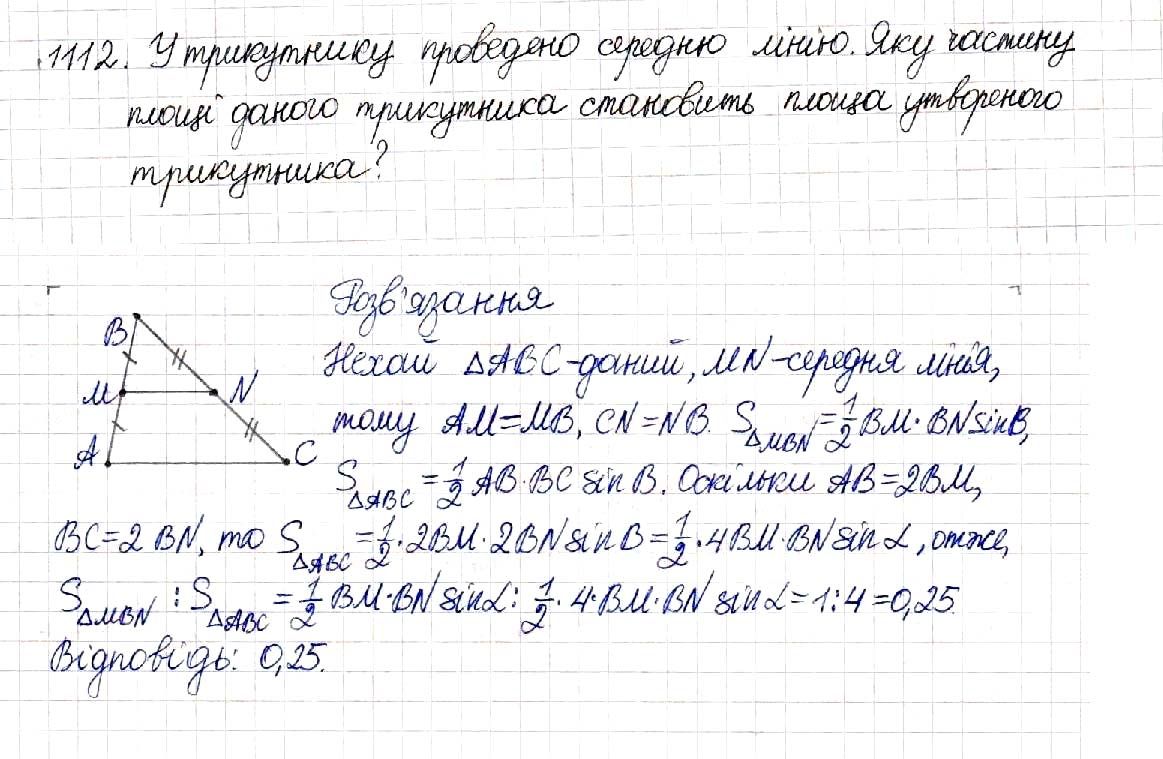 1112. У трикутнику проведено середню лінію. Яку частину
площі даного трикутника становить площа утвореного
трикутника?
Розв'язання
B
Нехай △ABC-даний, MN-середня лінія,
M N
тому AM=MB, CN=NB. S△MBN=1/2 BM·BN sinB,
A C
S△ABC=1/2 AB·BC sin B. Оскільки AB=2BM,
BC=2 BN, то S△ABC=1/2·2BM·2BN sin B=1/2·4BM·BN sin α, отже,
S△MBN : S△ABC=1/2 BM·BN sin α: 1/2·4·BM·BN sin α=1:4=0,25.
Відповідь: 0,25.